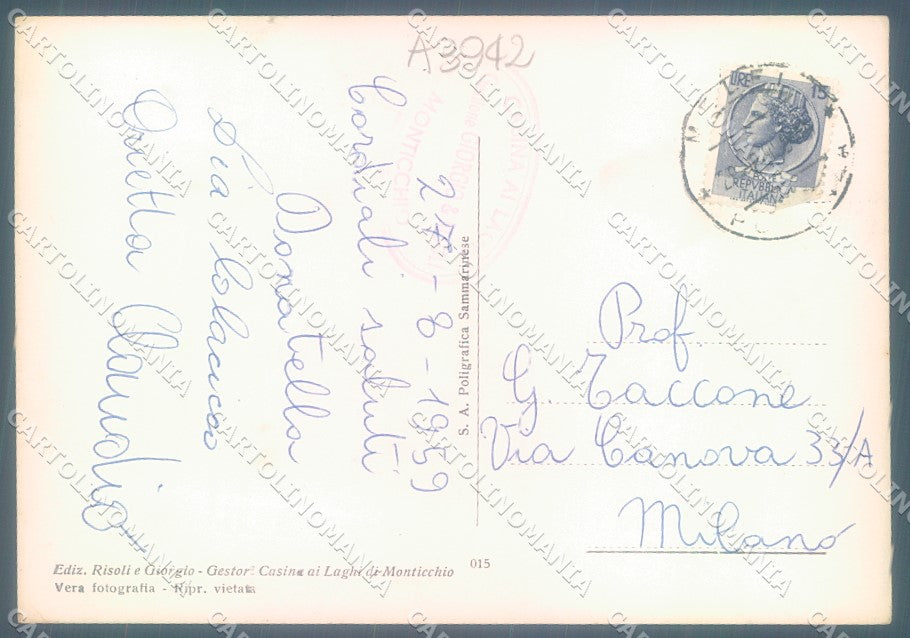 A3942
27-8-1959
Cordiali saluti
Donatella
Lia
Orietta Claudio
S. A. Poligrafica Sammarinese
LIRE 15
REPVBBLICA
ITALIANA
Prof.
G. Taccone
Via Canova 33/A
Milano
Ediz. Risoli e Giorgio - Gestori Casina ai Laghi di Monticchio
015
Vera fotografia - Ripr. vietata
CARTOLINOMANIA